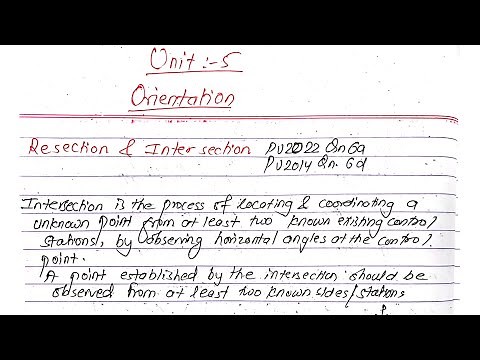 Unit :- 5
Orientation
Resection & Intersection PU2022 Qn 6a
PU2014 Qn. 6d
Intersection is the process of locating & coordinating a
unknown point from at least two known existing control
stations, by observing horizontal angles at the control
point.
A point established by the intersection should be
observed from at least two known sides/stations